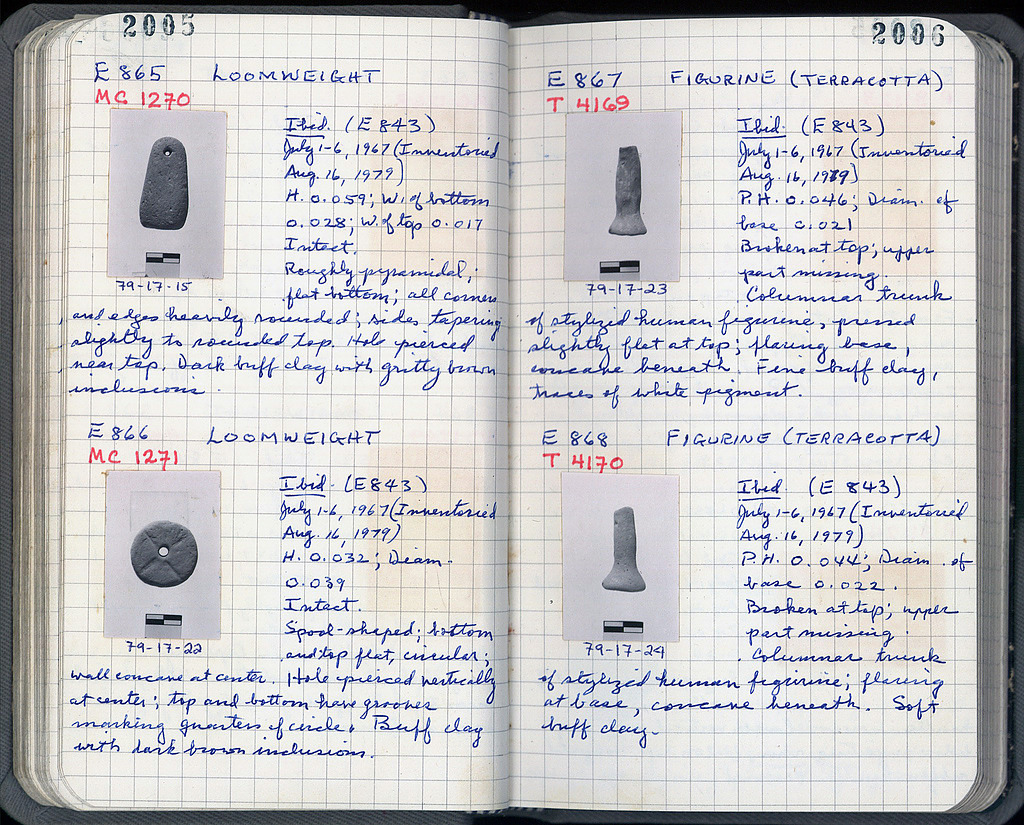 2005
E 865 LOOMWEIGHT
MC 1270
Ibid. (E 843)
July 1-6, 1967 (Inventoried
Aug. 16, 1979)
H. 0.059; W. of bottom
0.028; W. of top 0.017
Intact.
Roughly pyramidal;
flat bottom; all corners
79-17-15
and edges heavily rounded; sides tapering
slightly to rounded top. Hole pierced
near top. Dark buff clay with gritty brown
inclusions.
E 866 LOOMWEIGHT
MC 1271
Ibid. (E 843)
July 1-6, 1967 (Inventoried
Aug. 16, 1979)
H. 0.032; Diam.
0.039
Intact.
Spool-shaped; bottom
and top flat, circular;
79-17-22
wall concave at center. Hole pierced vertically
at center; top and bottom have grooves
marking quarters of circle. Buff clay
with dark brown inclusions.
2006
E 867 FIGURINE (TERRACOTTA)
T 4169
Ibid. (E 843)
July 1-6, 1967 (Inventoried
Aug. 16, 1979)
P.H. 0.046; Diam. of
base 0.021
Broken at top; upper
part missing.
Columnar trunk
79-17-23
of stylized human figurine, pressed
slightly flat at top; flaring base,
concave beneath. Fine buff clay,
traces of white pigment.
E 868 FIGURINE (TERRACOTTA)
T 4170
Ibid. (E 843)
July 1-6, 1967 (Inventoried
Aug. 16, 1979)
P.H. 0.044; Diam. of
base 0.022.
Broken at top; upper
part missing.
Columnar trunk
79-17-24
of stylized human figurine; flaring
at base, concave beneath. Soft
buff clay.